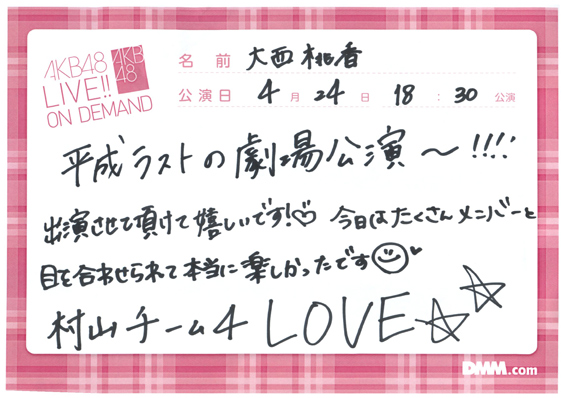 AKB48
LIVE!!
ON DEMAND
AKB
48
名前 大西桃香
公演日 4月24日 18:30公演
平成ラストの劇場公演〜!!!!
出演させて頂けて嬉しいです!♡ 今日はたくさんメンバーと
目を合わせられて本当に楽しかったです☺♥
村山チーム4 LOVE☆☆
DMM.com